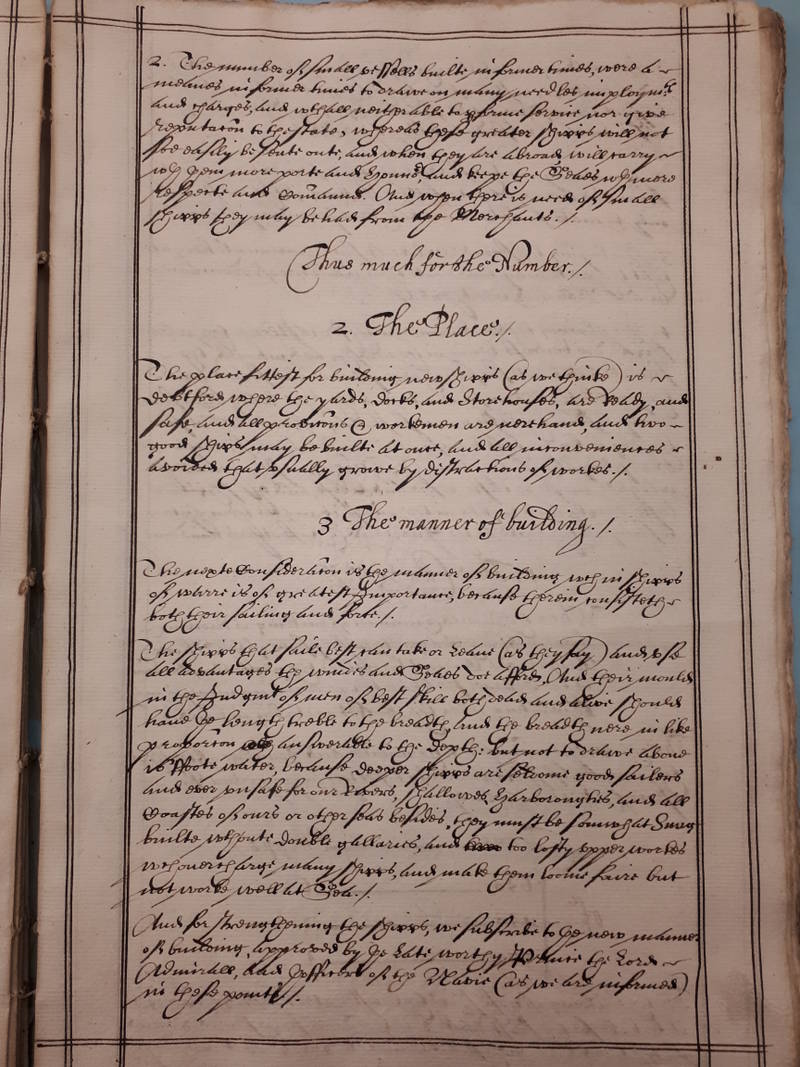 2. The number of small vessells builte in former times, were a
meanes in former times to drawe on many needles imploym.ts
and charges, and w.thall neither able to p'forme service nor give
reputac̃on to the state, whereas these greater shipps will not
soe easily be sente oute, and when they are abroad, will carry
w.th them more porte and, and keepe the Seaes w.th more
respecte and Com̃aund. And when there is need of small
shipps they may be had from the Merchants./.
Thus much for the Number./.
2. The Place./.
The place fittest for building new shipps (as we thinke) is
Debtford, where the yards, Docks, and Storehouses, are ready, and
safe, and all provic̃ons & workemen are nerehand, and two
good shipps may be builte at once, and all inconveniences
avoided that usually growe by distractions of workes./.
3 The manner of building./.
The nexte Considerac̃on is the manner of building w.ch in shipps
of warre is of greatest Importance, because therein consisteth
both their sailing and force./.
The shipps that saile best, can take or Leave (as they say) and use
all advantages the windes and Seaes doe afford, And their mould
in the Judgm.t of men of best skill both dead and alive should
have y.e Length treble to the breadth, and the breadth nere in like
proporc̃on answerable to the depth: but not to drawe above
16 ffoote water, because deeper shipps are seldome good sailers
and ever unsafe for our Rivers, shallowe Harboroughes, and all
Coastes of ours or other seas besides, they must be somwhat Snug
builte w.thoute double gallaries, and too lofty upper workes
w.ch overcharge many shipps, and make them loome faire but
not worke well at Sea./.
And for strengthening the shipps, we subscribe to y.e new manner
of building, approved by y.e Late worthy Prince the Lord
Admirall, and Officers of the Navie (as we are informed)
in these points./.